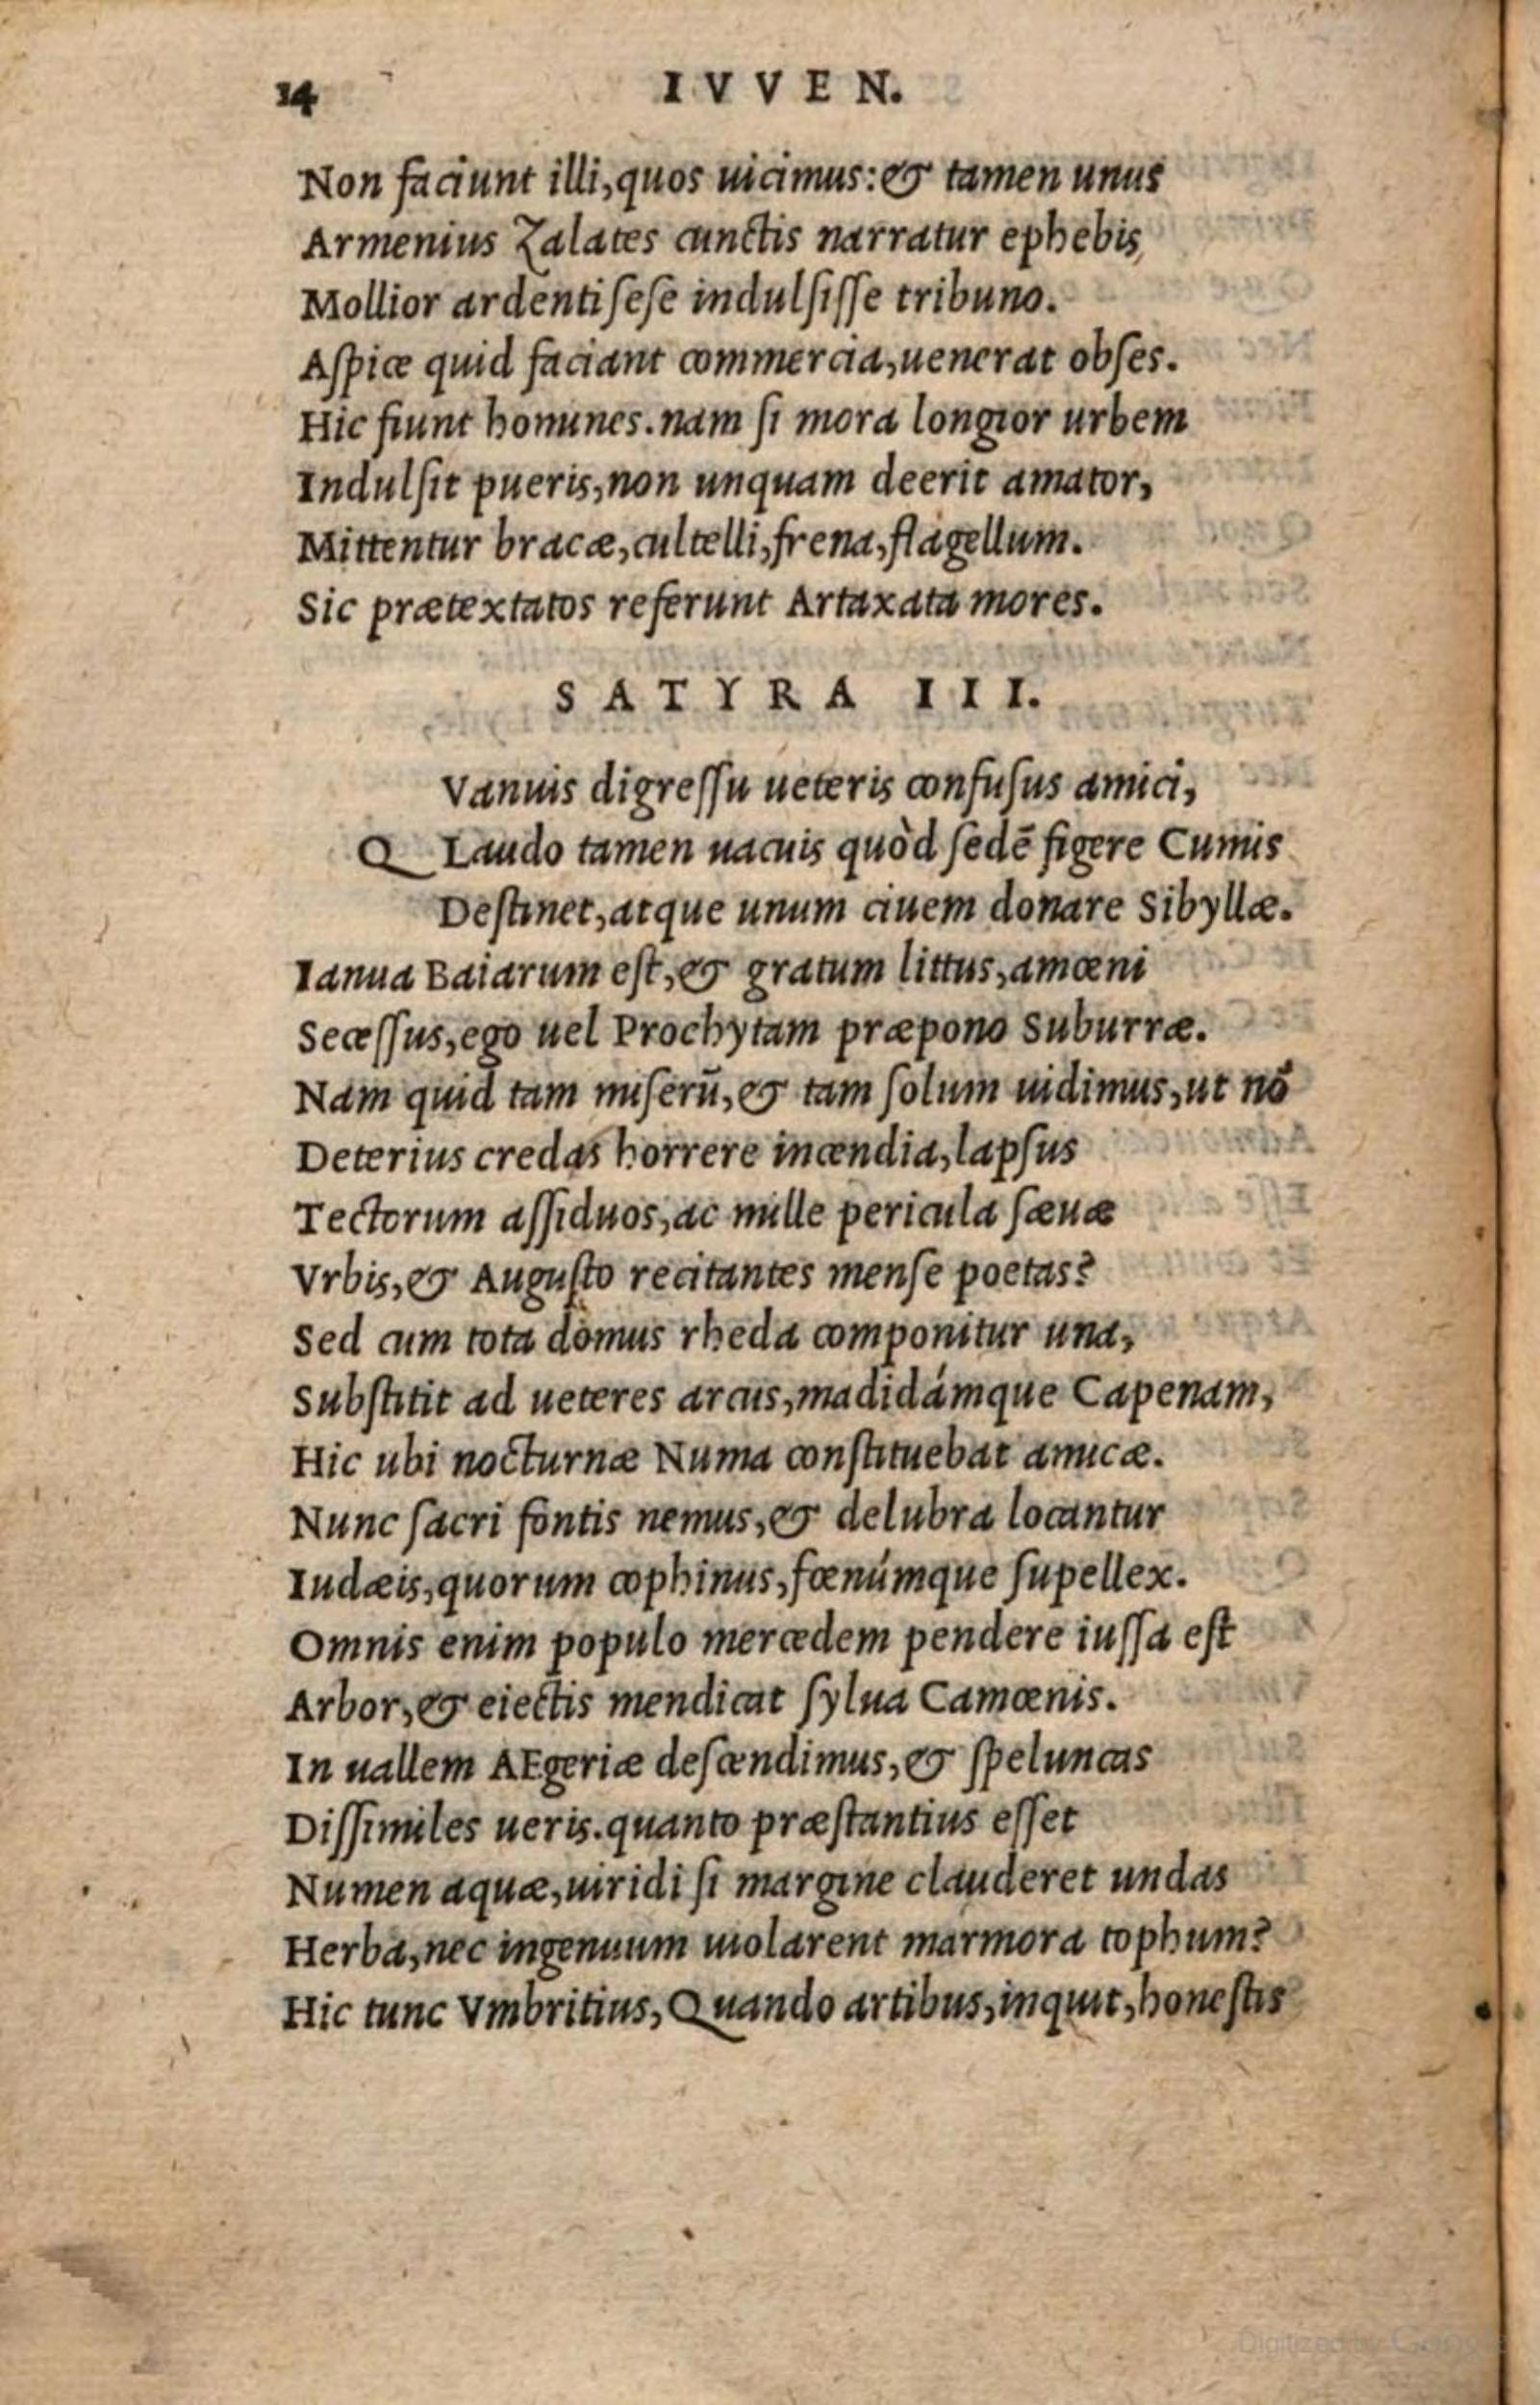 14 IVVEN.
Non faciunt illi, quos uicimus: & tamen unus
Armenius Zalates cunctis narratur ephebis,
Mollior ardenti ſeſe indulſiſſe tribuno.
Aſpice quid faciant commercia, uenerat obſes.
Hic fiunt homines. nam ſi mora longior urbem
Indulſit pueris, non unquam deerit amator,
Mittentur bracæ, cultelli, frena, flagellum.
Sic prætextatos referunt Artaxata mores.
SATYRA III.
Vanuis digreſſu ueteris confuſus amici,
Q Laudo tamen uacuis quòd ſedē figere Cumis
Deſtinet, atque unum ciuem donare Sibyllæ.
Ianua Baiarum eſt, & gratum littus, amœni
Seceſſus, ego uel Prochytam præpono Suburræ.
Nam quid tam miſerū, & tam ſolum uidimus, ut nō
Deterius credas horrere incendia, lapſus
Tectorum aſſiduos, ac mille pericula ſæuæ
Vrbis, & Auguſto recitantes menſe poetas?
Sed cum tota domus rheda componitur una,
Subſtitit ad ueteres arcus, madidámque Capenam,
Hic ubi nocturnæ Numa conſtituebat amicæ.
Nunc ſacri fontis nemus, & delubra locantur
Iudæis, quorum cophinus, fœnúmque ſupellex.
Omnis enim populo mercedem pendere iuſſa eſt
Arbor, & eiectis mendicat ſylua Camœnis.
In uallem AEgeriæ deſcendimus, & ſpeluncas
Diſſimiles ueris. quanto præſtantius eſſet
Numen aquæ, uiridi ſi margine clauderet undas
Herba, nec ingenuum uiolarent marmora tophum?
Hic tunc Vmbritius, Quando artibus, inquit, honeſtis
Digitized by Google